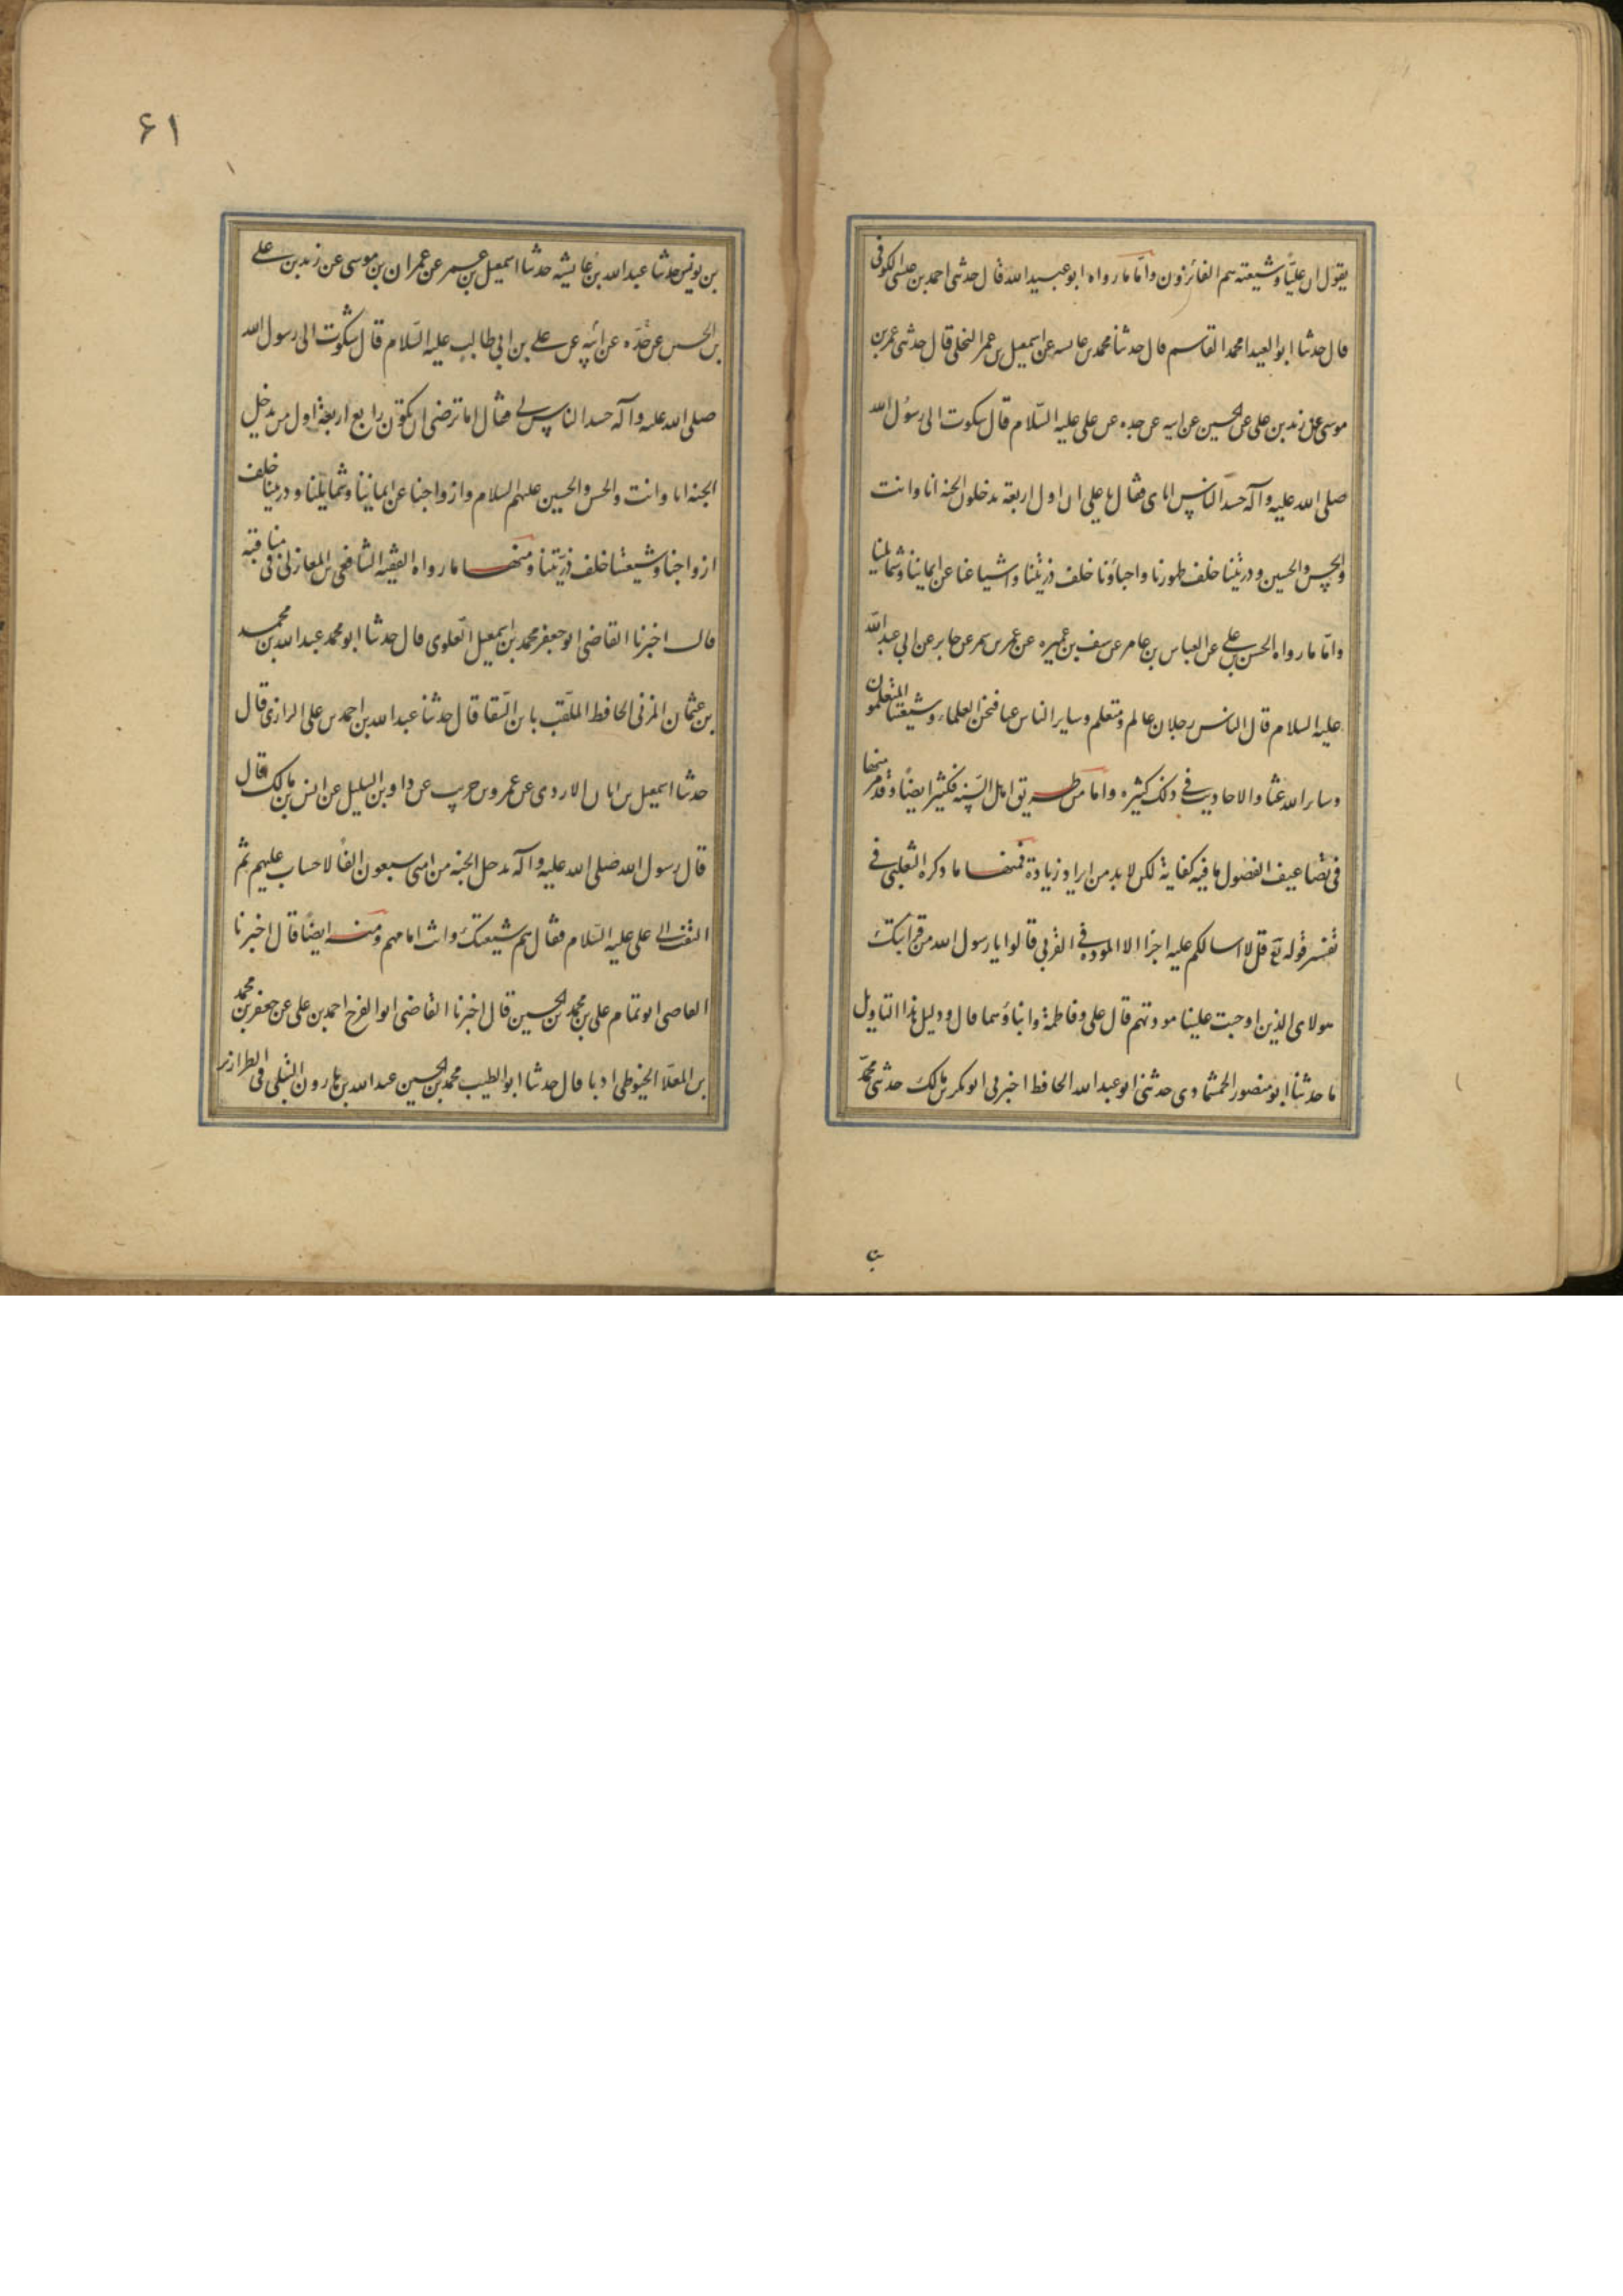 يقول ان عليّا وشيعته هم الفائزون وامّا ما رواه ابو عبيد الله قال حدثنى احمد بن عيسى الكوفى
قال حدثنا ابو العيدا محمد القاسم قال حدثنا محمد بن عايسه عن اسمعيل بن عمر النخلى قال حدثنى عمر بن
موسى عن زيد بن على عن الحسين عن ابيه عن جده عن على عليه السّلام قال شكوت الى رسول الله
صلى الله عليه وآله حسد الناس اياى فقال يا على ان اول اربعة يدخلون الجنه انا وانت
والحسن والحسين وذريتنا خلف ظهورنا واحباؤنا خلف ذريتنا واشياعنا عن ايماننا وشمائلنا
وامّا ما رواه الحسن بن على عن العباس بن عامر عن سيف بن عميره عن عمر بن شمر عن جابر عن ابى عبد الله
عليه السلام قال الناس رجلان عالم ومتعلم وساير الناس غثا فنحن العلماء وشيعتنا المتعلمون
وساير الناس غثا والاحاديث فى ذلك كثيره واما من طريق اهل السّنه فكثير ايضًا وقد مر منها
فى تضاعيف الفصول ما فيه كفاية لكن لا بد من ايراد زيادة فمنها ما ذكره الثعلبى فى
تفسير قوله تع قل لا اسالكم عليه اجرًا الا المودة فى القربى قالوا يا رسول الله من قرابتك
هولاى الذين اوجبت علينا مودتهم قال على وفاطمة وابناؤهما قال ودليل هذا التاويل
ما حدثنا ابو منصور الحمشادى حدثنى ابو عبد الله الحافظ اخبرنى ابو بكر بن مالك حدثنى محمّد
بن
۶۱
بن يونس حدثنا عبد الله بن عايشه حدثنا اسمعيل بن عمر عن عمران بن موسى عن زيد بن على
بن الحسين عن جدّه عن ابيه عن على بن ابى طالب عليه السّلام قال شكوت الى رسول الله
صلى الله عليه وآله حسد الناس لى فقال اما ترضى ان تكون رابع اربعة اول من يدخل
الجنه انا وانت والحسن والحسين عليهم السلام وازواجنا عن ايماننا وشمايلنا وذريتنا خلف
ازواجنا وشيعتنا خلف ذريّتنا ومنها ما رواه الفقيه الشافعى بن المغازلى فى مناقبه
قال اخبرنا القاضى ابو جعفر محمد بن اسمعيل العلوى قال حدثنا ابو محمد عبد الله بن محمد
بن عثمان المزنى الحافظ الملقّب بابن السّقا قال حدثنا عبد الله بن احمد بن على الرازى قال
حدثنا اسمعيل بن ابان الازدى عن عمرو بن حريث عن داود بن السليل عن انس بن مالك قال
قال رسول الله صلى الله عليه وآله يدخل الجنه من امتى سبعون الفًا لا حساب عليهم ثم
التفت الى على عليه السّلام فقال هم شيعتك وانت امامهم ومنه ايضًا قال اخبرنا
القاضى ابو تمام على بن محمد بن الحسين قال اخبرنا القاضى ابو الفرج احمد بن على عن جعفر بن محمد
بن المعلّا الخيوطى اذنا قال حدثنا ابو الطيب محمد بن الحسين عبد الله بن هارون النيلى فى الطراز